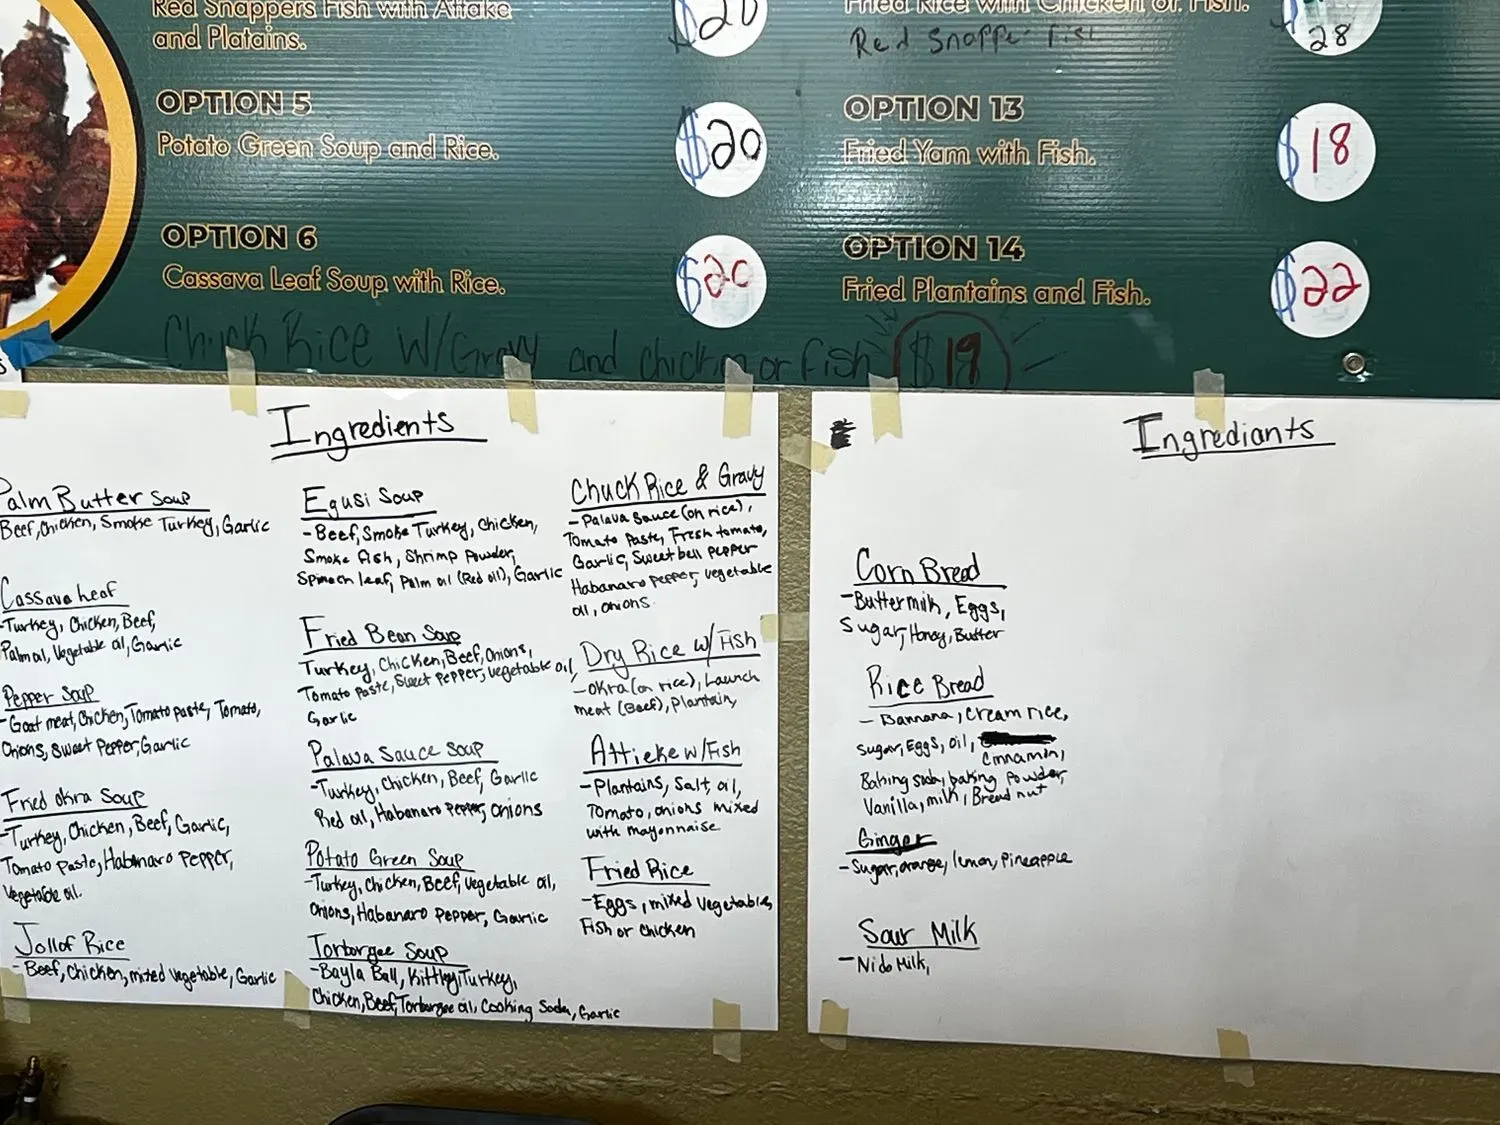 Red Snappers Fish with Attake
and Platains.
$20
OPTION 5
Potato Green Soup and Rice.
$20
OPTION 6
Cassava Leaf Soup with Rice.
$20
Fried Rice with Chicken or Fish.
Red Snapper Fish
28
OPTION 13
Fried Yam with Fish.
$18
OPTION 14
Fried Plantains and Fish.
$22
Chuck Rice W/Gravy and chicken or fish $19
Ingredients
Palm Butter Soup
Beef, Chicken, Smoke Turkey, Garlic
Cassava Leaf
-Turkey, Chicken, Beef,
Palm oil, Vegetable oil, Garlic
Pepper Soup
-Goat meat, Chicken, Tomato paste, Tomato,
Onions, Sweet Pepper, Garlic
Fried Okra Soup
-Turkey, Chicken, Beef, Garlic,
Tomato Paste, Habanaro Pepper,
Vegetable oil.
Jollof Rice
- Beef, Chicken, mixed vegetable, Garlic
Egusi Soup
-Beef, Smoke Turkey, Chicken,
Smoke Fish, Shrimp Powder,
Spinach leaf, Palm oil (Red oil), Garlic
Fried Bean Soup
Turkey, Chicken, Beef, Onions,
Tomato paste, Sweet Pepper, vegetable oil,
Garlic
Palava Sauce Soup
-Turkey, Chicken, Beef, Garlic
Red oil, Habanaro Pepper, onions
Potato Green Soup
-Turkey, Chicken, Beef, Vegetable oil,
Onions, Habanaro Pepper, Garlic
Torborgee Soup
-Bayla Ball, Kittley, Turkey,
Chicken, Beef, Torborgee oil, Cooking Soda, Garlic
Chuck Rice & Gravy
-Palava Sauce (on rice),
Tomato Paste, Fresh tomato,
Garlic, Sweet bell pepper
Habanaro pepper, vegetable
oil, onions.
Dry Rice w/ Fish
-Okra (on rice), Launch
meat (Beef), Plantain,
Attieke w/Fish
-Plantains, Salt, oil,
Tomato, onions mixed
with mayonnaise
Fried Rice
-Eggs, mixed vegetables,
Fish or chicken
Ingrediants
Corn Bread
-Buttermilk, Eggs,
Sugar, Honey, Butter
Rice Bread
- Bannana, Cream rice,
Sugar, Eggs, oil,
Cinnamon,
Baking soda, baking powder,
Vanilla, milk, Bread nut
Ginger
-Sugar, orange, lemon, pineapple
Sour Milk
-Nido Milk,